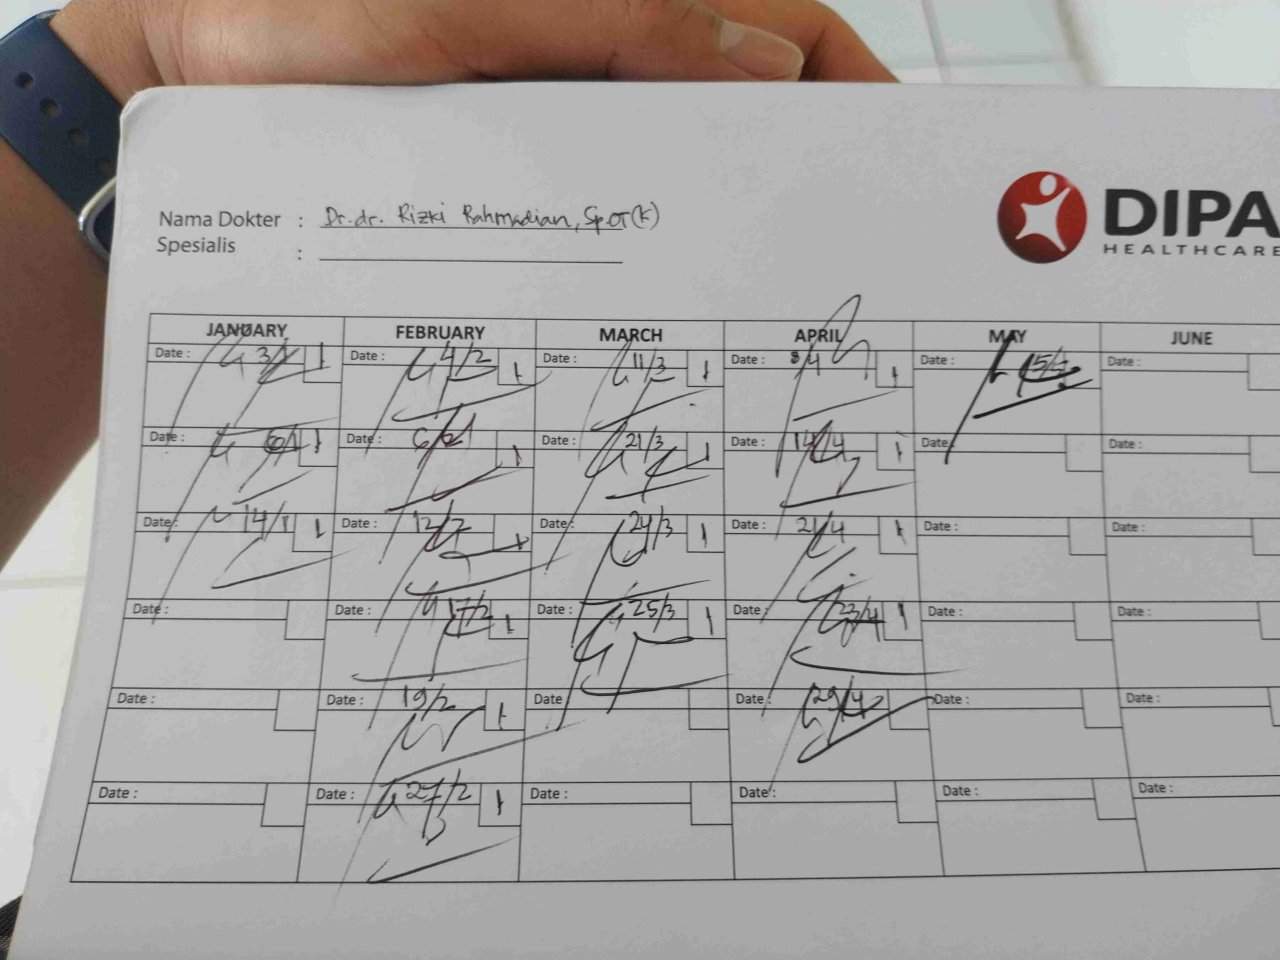 Nama Dokter : Dr. dr. Rizki Rahmadian, SpOT(K)
Spesialis :
DIPA
HEALTHCARE
JANUARY FEBRUARY MARCH APRIL MAY JUNE
Date : 3/1 1 Date : 4/2 1 Date : 11/3 1 Date : 8/4 1 Date : 15/5 Date :
Date : 6/1 1 Date : 6/2 1 Date : 21/3 1 Date : 14/4 1 Date : Date :
Date : 14/1 1 Date : 12/2 1 Date : 24/3 1 Date : 21/4 1 Date : Date :
Date : Date : 17/2 1 Date : 25/3 1 Date : 23/4 1 Date : Date :
Date : Date : 19/2 1 Date : 29/4 Date : Date :
Date : Date : 27/2 1 Date : Date : Date : Date :